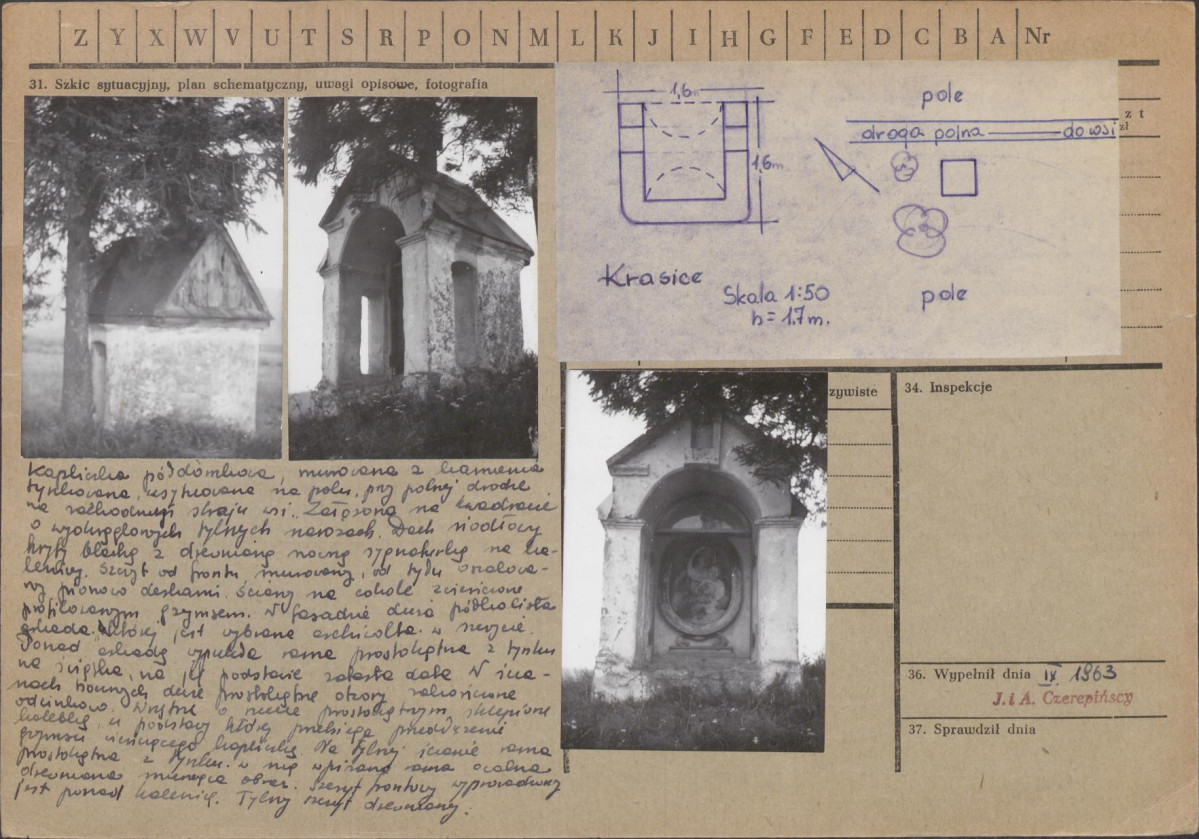 Z Y X W V U T S R P O N M L K J I H G F E D C B A Nr
31. Szkic sytuacyjny, plan schematyczny, uwagi opisowe, fotografia
1,6m
1,6m
pole
droga polna do wsi
pole
Krasice
Skala 1:50
h = 1.7 m.
z t
zł
zywiste
34. Inspekcje
36. Wypełnił dnia IX 1963
J. i A. Czerepińscy
37. Sprawdził dnia
Kapliczka półdomkowa, murowana z kamienia
tynkowana, usytuowana na polu, przy polnej drodze
na zachodnim skraju wsi. Założona na kwadracie
o wyokrąglonych tylnych narożach. Dach siodłowy
kryty blachą z drewnianą nocną sygnaturką na ka-
lenicy. Szczyt od frontu murowany, od tyłu oszalowa-
ny pionowo deskami. Ściany na cokole zwieńczone
profilowanym gzymsem. W fasadzie duża półkolista
arkada, w której jest wybrana archiwolta w
Ponad arkadą wypukła rama prostokątna z tynku
na, na jej podstawie zatarta data. W ścia-
nach bocznych dwie prostokątne otwory zakończone
odcinkowo. Wnętrze o rzucie prostokątnym sklepione
kolebką, u podstawy której przebiega przedłużenie
gzymsu wieńczącego kapliczkę. Na tylnej ścianie rama
prostokątna z tynku, w nią wpisana rama owalna
drewniana mieszcząca obraz. Szczyt frontowy wyprowadzony
jest ponad kalenicę. Tylny szczyt drewniany.